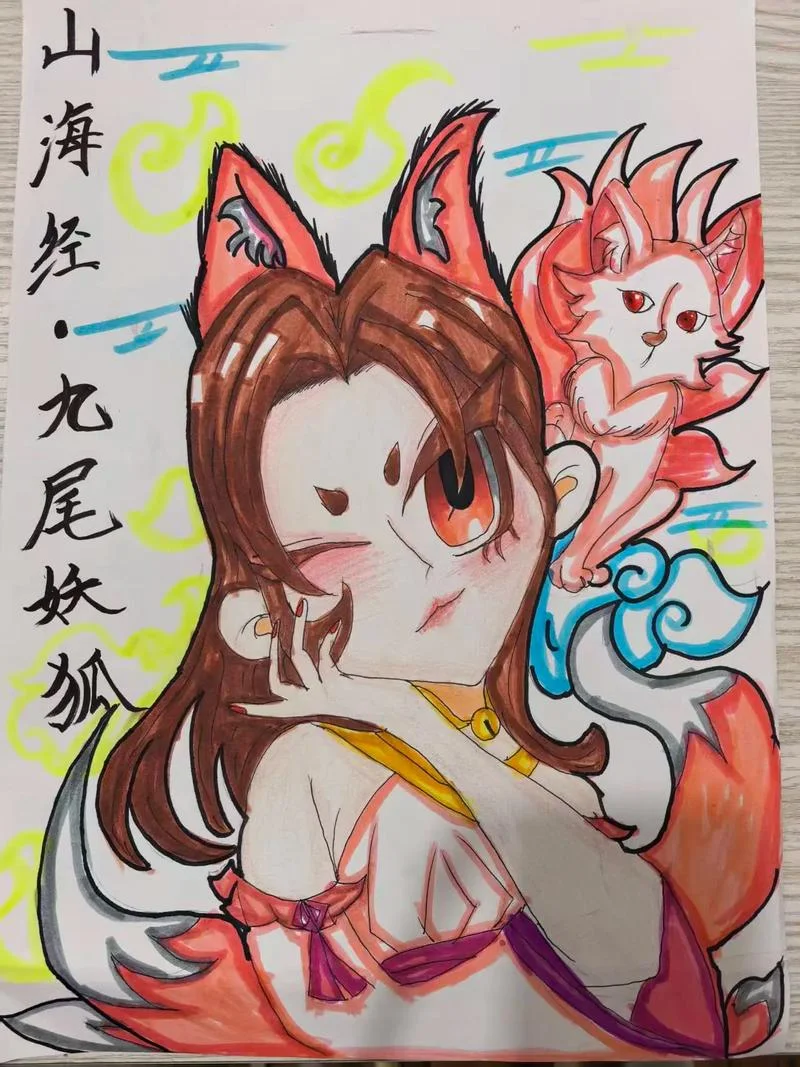 山海经·九尾妖狐